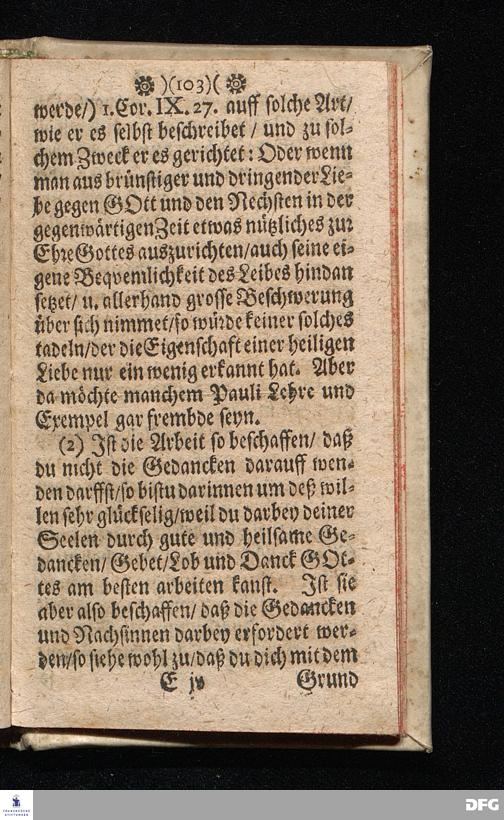 )(103)(
werde/) 1. Cor. IX. 27. auff solche Art/
wie er es selbst beschreibet / und zu sol-
chem Zweck er es gerichtet: Oder wenn
man aus brünstiger und dringender Lie-
be gegen GOtt und den Nechsten in der
gegenwärtigen Zeit etwas nützliches zur
Ehre Gottes auszurichten/auch seine ei-
gene Beqvemlichkeit des Leibes hindan
setzet/ u. allerhand grosse Beschwerung
über sich nimmet/so würde keiner solches
tadeln/der die Eigenschaft einer heiligen
Liebe nur ein wenig erkannt hat. Aber
da möchte manchem Pauli Lehre und
Exempel gar frembde seyn.
(2) Ist die Arbeit so beschaffen/ daß
du nicht die Gedancken darauff wen-
den darffst/so bistu darinnen um deß wil-
len sehr glückselig/weil du darbey deiner
Seelen durch gute und heilsame Ge-
dancken/ Gebet/Lob und Danck GOt-
tes am besten arbeiten kanst. Ist sie
aber also beschaffen/ daß die Gedancken
und Nachsinnen darbey erfordert wer-
den/so siehe wohl zu/daß du dich mit dem
E jv Grund
FRANCKESCHE STIFTUNGEN
DFG